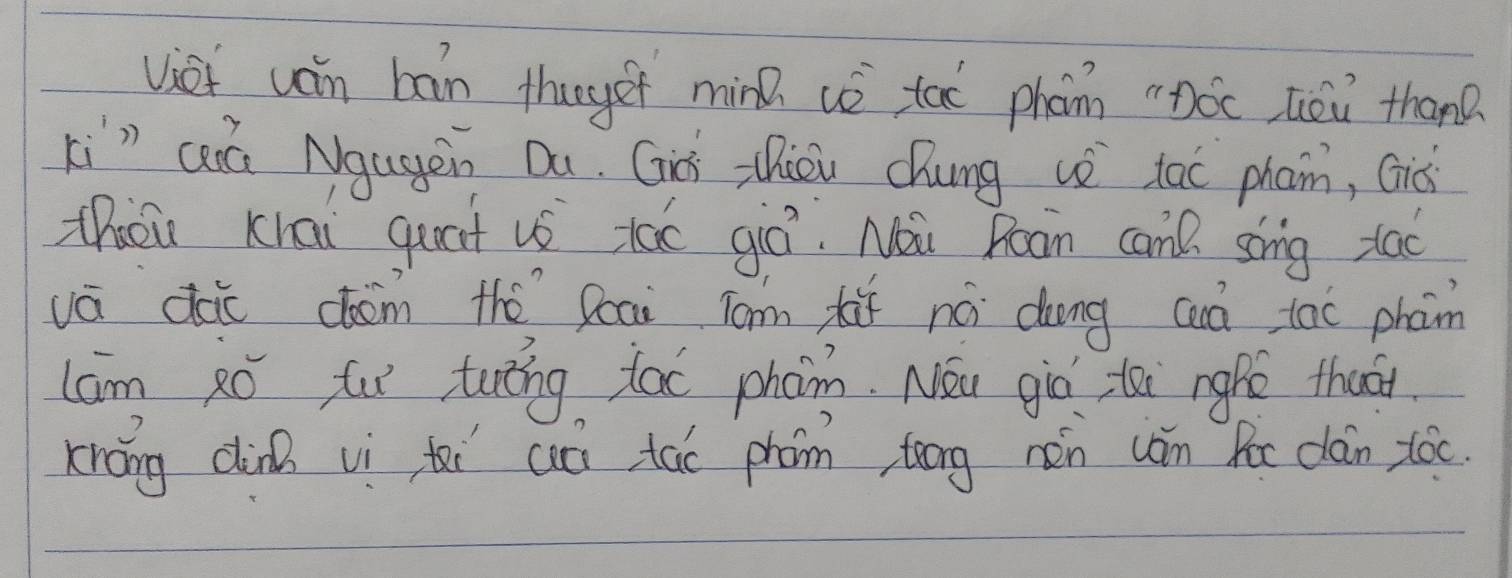 Viết văn bản thuyết minh về tác phẩm "Đọc Tiểu thanh
kí" của Nguyễn Du. Giới thiệu chung về tác phẩm, Giới
thiệu khái quát về tác giả. Nêu hoàn cảnh sáng tác
và đặc điểm thể loại. Tóm tắt nội dung của tác phẩm
làm rõ tư tưởng tác phẩm. Nêu giá trị nghệ thuật.
khẳng định vị trí của tác phẩm trong nền văn học dân tộc.